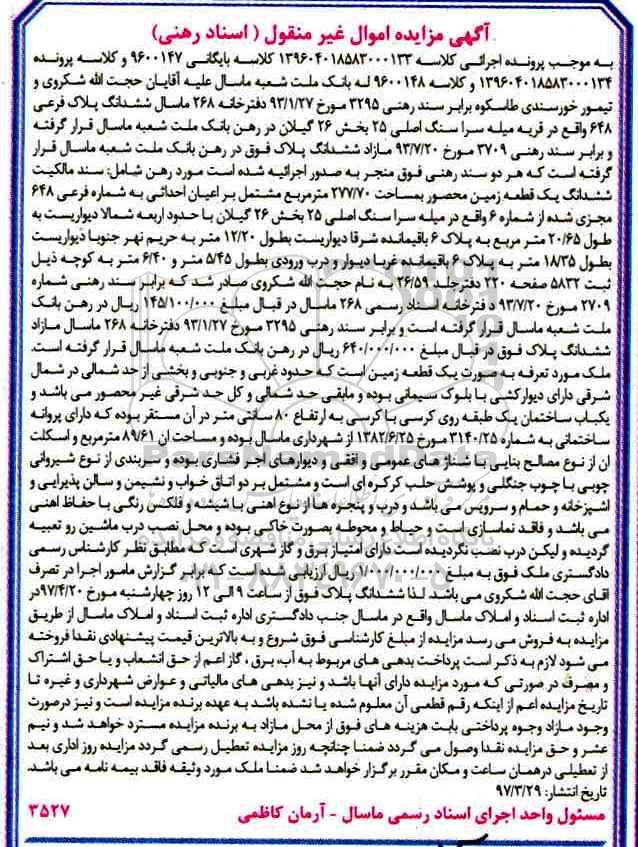 آگهی مزایده اموال غیر منقول ( اسناد رهنی)
به موجب پرونده اجرائی کلاسه ۱۳۹۶۰۴۰۱۸۵۸۳۰۰۰۱۳۳ کلاسه بایگانی ۹۶۰۰۱۴۷ و کلاسه پرونده
۱۳۹۶۰۴۰۱۸۵۸۳۰۰۰۱۳۴ و کلاسه ۹۶۰۰۱۴۸ له بانک ملت شعبه ماسال علیه آقایان حجت الله شکروی و
تیمور خورسندی طاسکوه برابر سند رهنی ۳۲۹۵ مورخ ۹۳/۱/۲۷ دفترخانه ۲۶۸ ماسال ششدانگ پلاک فرعی
۶۴۸ واقع در قریه میله سرا سنگ اصلی ۲۵ بخش ۲۶ گیلان در رهن بانک ملت شعبه ماسال قرار گرفته
و برابر سند رهنی ۳۷۰۹ مورخ ۹۳/۷/۲۰ مازاد ششدانگ پلاک فوق در رهن بانک ملت شعبه ماسال قرار
گرفته است که هر دو سند رهنی فوق منجر به صدور اجرائیه شده است مورد رهن شامل: سند مالکیت
ششدانگ یک قطعه زمین محصور بمساحت ۲۷۷/۷۰ مترمربع مشتمل بر اعیان احداثی به شماره فرعی ۶۴۸
مجزی شده از شماره ۶ واقع در میله سرا سنگ اصلی ۲۵ بخش ۲۶ گیلان با حدود اربعه شمالا دیواریست به
طول ۲۰/۶۵ متر مربع به پلاک ۶ باقیمانده شرقا دیواریست بطول ۱۲/۲۰ متر به حریم نهر جنوبا دیواریست
بطول ۱۸/۳۵ متر به پلاک ۶ باقیمانده غربا دیوار و درب ورودی بطول ۵/۴۵ متر و ۶/۴۰ متر به کوچه ذیل
ثبت ۵۸۳۲ صفحه ۲۲۰ دفترجلد ۲۶/۵۹ به نام حجت الله شکروی صادر شد که برابر سند رهنی شماره
۲۷۰۹ مورخ ۹۳/۷/۲۰ دفترخانه اسناد رسمی ۲۶۸ ماسال در قبال مبلغ ۱۴۵/۱۰۰/۰۰۰ ریال در رهن بانک
ملت شعبه ماسال قرار گرفته است و برابر سند رهنی ۳۲۹۵ مورخ ۹۳/۱/۲۷ دفترخانه ۲۶۸ ماسال مازاد
ششدانگ پلاک فوق در قبال مبلغ ۶۴۰/۰۰۰/۰۰۰ ریال در رهن بانک ملت شعبه ماسال قرار گرفته است.
ملک مورد تعرفه به صورت یک قطعه زمین است که حدود غربی و جنوبی و بخشی از حد شمالی در شمال
شرقی دارای دیوارکشی با بلوک سیمانی بوده و مابقی حد شمالی و کل حد شرقی غیر محصور می باشد و
یکباب ساختمان یک طبقه روی کرسی با کرسی به ارتفاع ۸۰ سانتی متر در آن مستقر بوده که دارای پروانه
ساختمانی به شماره ۳۱۴۰/۲۵ مورخ ۱۳۸۲/۶/۲۵ از شهرداری ماسال بوده و مساحت ان ۸۹/۶۱ مترمربع و اسکلت
ان از نوع مصالح بنایی با شناژ های عمومی و افقی و دیوارهای اجر فشاری بوده و سربندی از نوع شیروانی
چوبی با چوب جنگلی و پوشش حلب کرکره ای است و مشتمل بر دو اتاق خواب و نشیمن و سالن پذیرایی و
اشپزخانه و حمام و سرویس می باشد و درب و پنجره ها از نوع اهنی با شیشه و فلکس رنگی با حفاظ اهنی
می باشد و فاقد نماسازی است و حیاط و محوطه بصورت خاکی بوده و محل نصب درب ماشین رو تعبیه
گردیده و لیکن درب نصب نگردیده است دارای امتیاز برق و گاز شهری است که مطابق نظر کارشناس رسمی
دادگستری ملک فوق به مبلغ ۱/۰۰۰/۰۰۰/۰۰۰ ریال ارزیابی شده است که برابر گزارش مامور اجرا در تصرف
اقای حجت الله شکروی می باشد. لذا ششدانگ پلاک فوق از ساعت ۹ الی ۱۲ روز چهارشنبه مورخ ۹۷/۴/۲۰در
اداره ثبت اسناد و املاک ماسال واقع در ماسال جنب دادگستری اداره ثبت اسناد و املاک ماسال از طریق
مزایده به فروش می رسد مزایده از مبلغ کارشناسی فوق شروع و به بالاترین قیمت پیشنهادی نقدا فروخته
می شود لازم به ذکر است پرداخت بدهی های مربوط به آب، برق ، گاز اعم از حق انشعاب و یا حق اشتراک
و مصرف در صورتی که مورد مزایده دارای آنها باشد و نیز بدهی های مالیاتی و عوارض شهرداری و غیره تا
تاریخ مزایده اعم از اینکه رقم قطعی آن معلوم شده یا نشده باشد به عهده برنده مزایده است و نیز درصورت
وجود مازاد وجوه پرداختی بابت هزینه های فوق از محل مازاد به برنده مزایده مسترد خواهد شد و نیم
عشر و حق مزایده نقدا وصول می گردد ضمنا چنانچه روز مزایده تعطیل رسمی گردد مزایده روز اداری بعد
از تعطیلی درهمان ساعت و مکان مقرر برگزار خواهد شد ضمنا ملک مورد وثیقه فاقد بیمه نامه می باشد.
تاریخ انتشار: ۹۷/۳/۲۹
مسئول واحد اجرای اسناد رسمی ماسال - آرمان کاظمی ۳۵۲۷